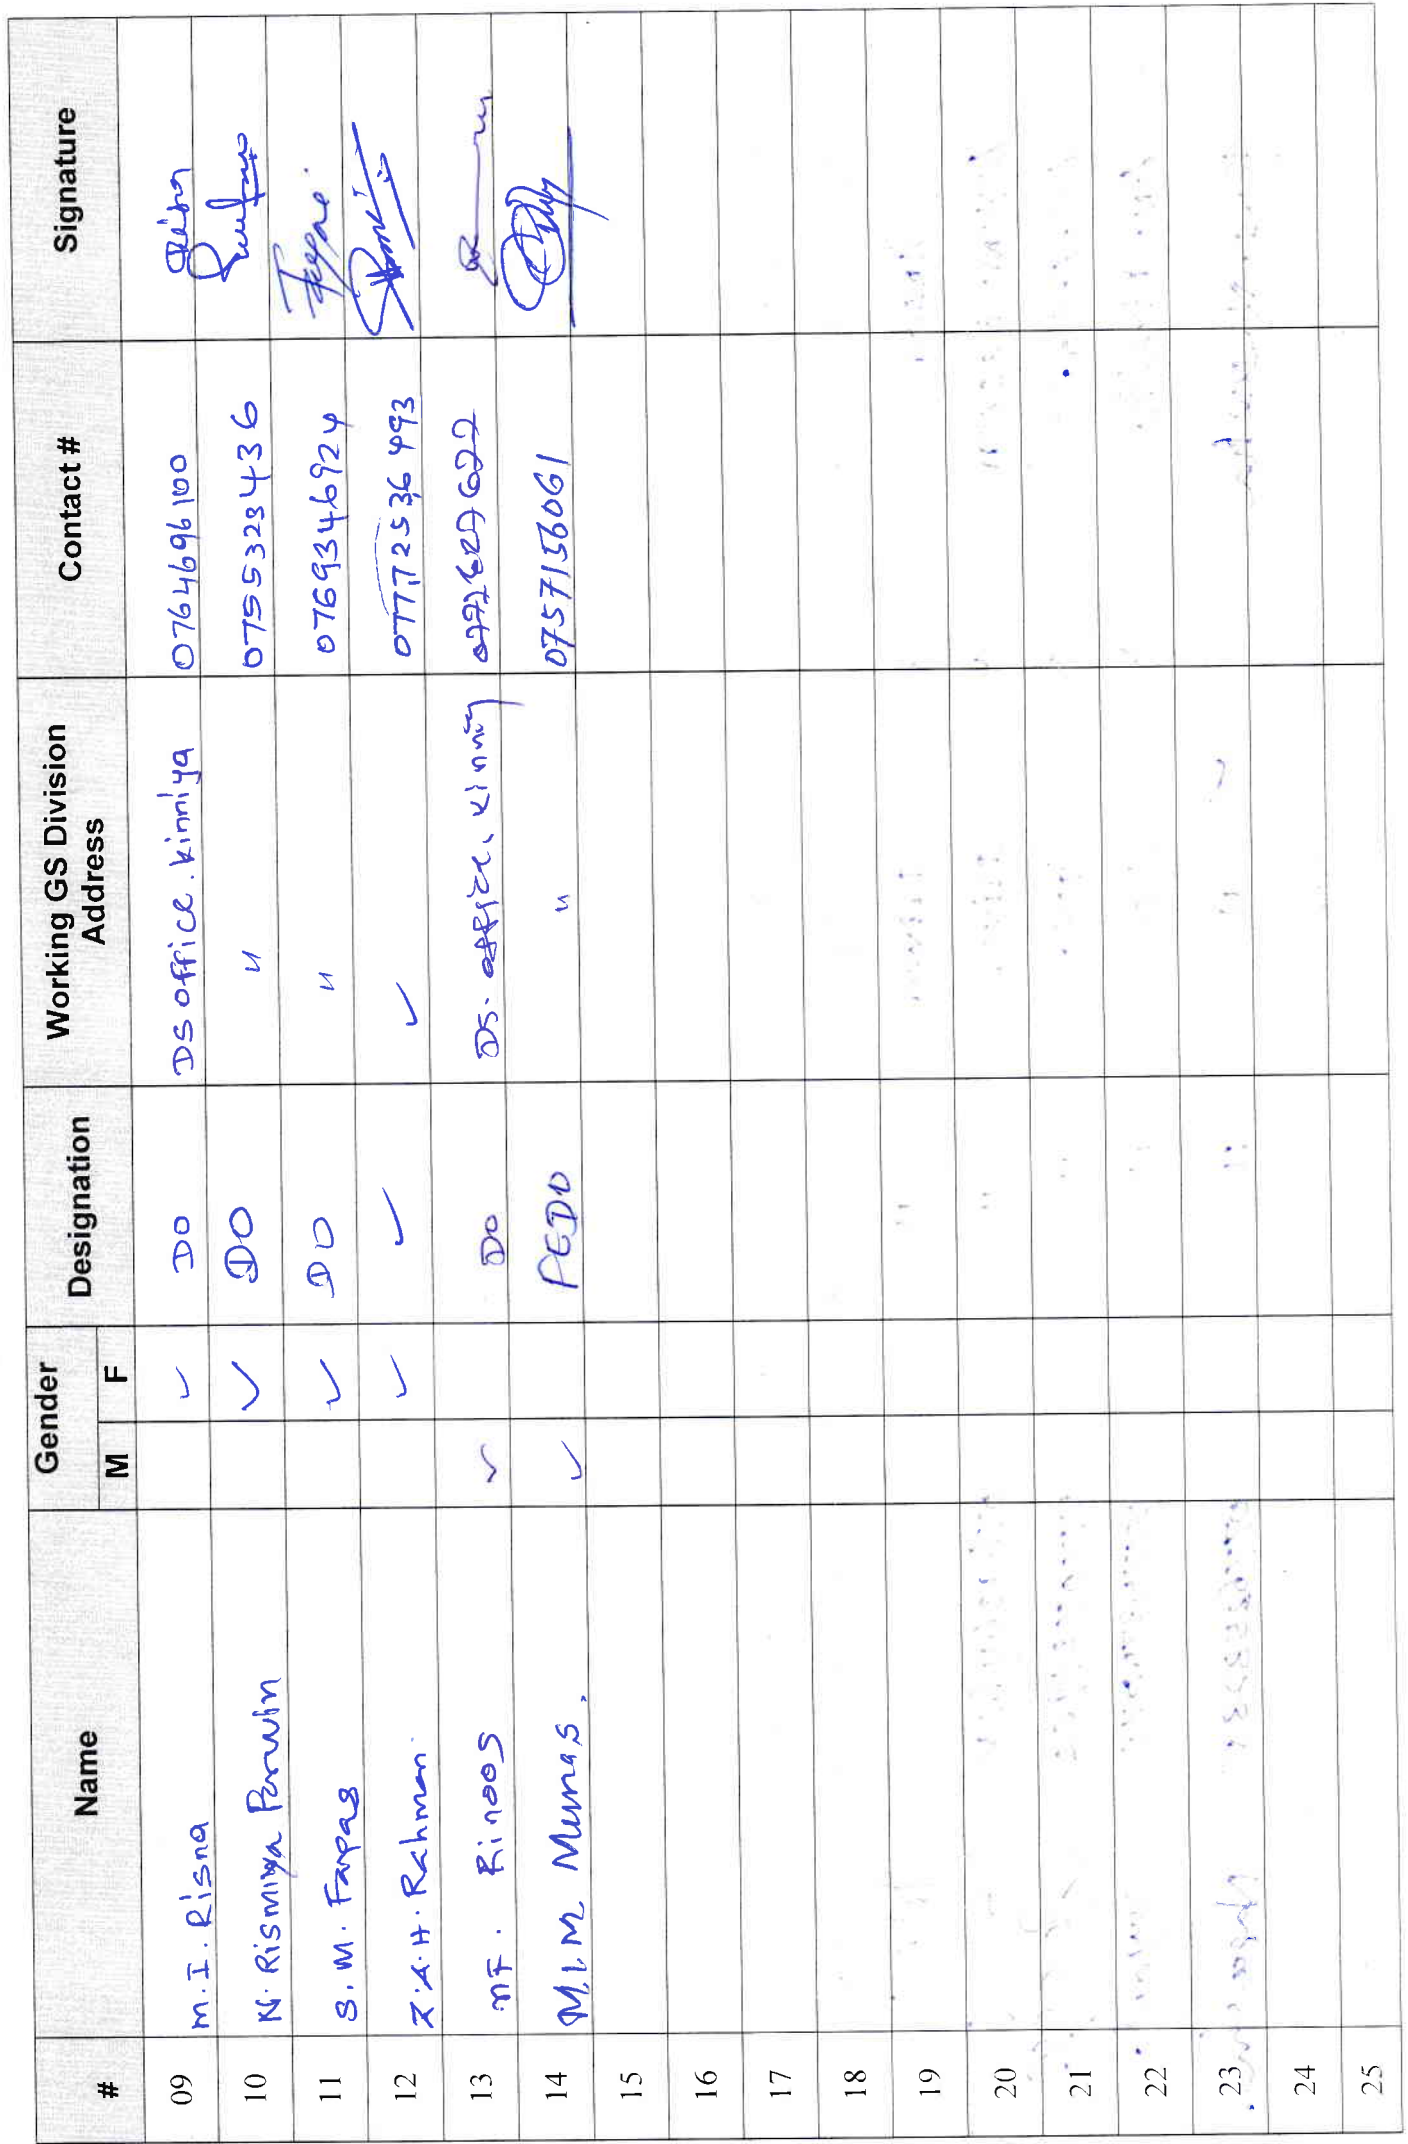 # Name Gender Designation Working GS Division Address Contact # Signature
M F
09 M.I.Risna ✓ DO DS office.kinniya 0764696100
10 N.Rismiya Parwin ✓ DO " 0755323436
11 S.M.Farpas ✓ DO " 0769346924
12 Z.A.H.Rahman. ✓ ✓ ✓ 07772536493
13 MF. Rinoos ✓ DO DS. office, 
14 M.I.M Munas. ✓ PEDO " 0757156061
15
16
17
18
19
20
21
22
23
24
25